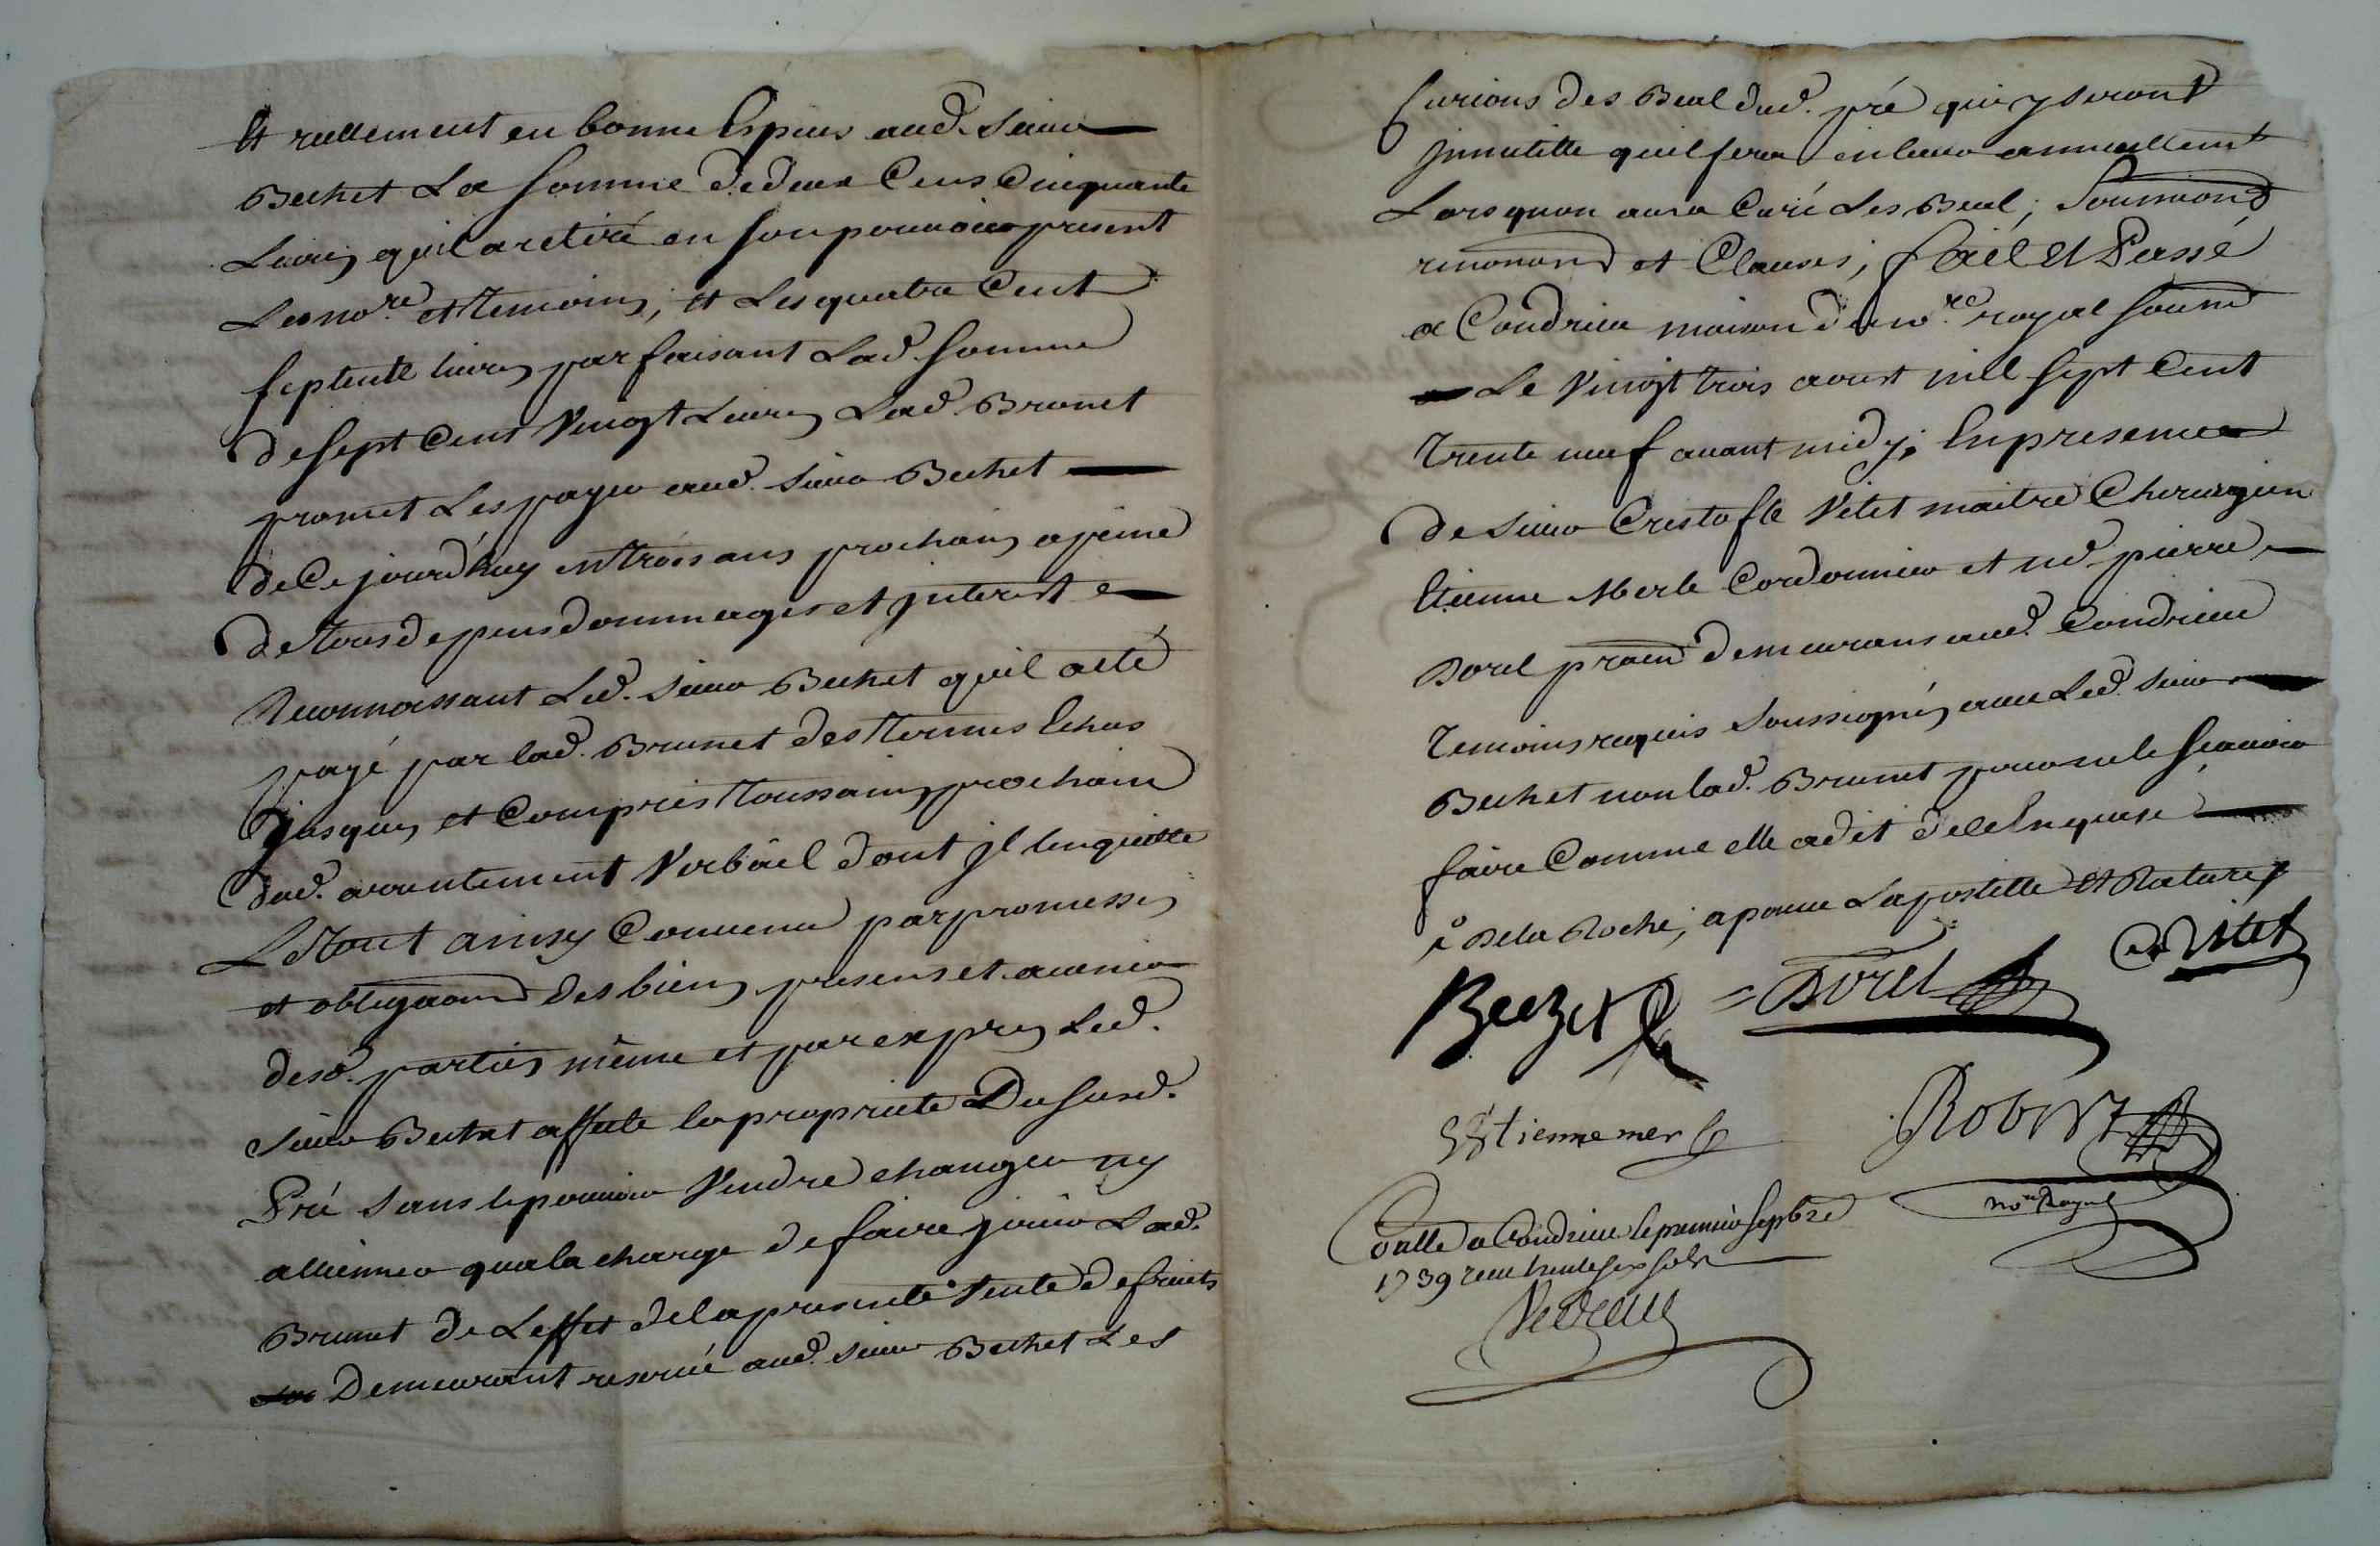 Et reellement en bonne Especes aud. sieur
Bechet La somme de deux Cens Cinquante
Livres quil a retiré en son pouvoir present
Led no.re et temoins, et Les quatre Cent
septente livres parfaisant Lad. somme
de sept Cens Vingt Livres Lad. Brunet
promet Les payer aud. sieur Bechet
de Ce jourdhuy en trois ans prochains a peine
de tous depens dommages et jnterest
Reconnoissant Led. sieur Bechet quil a esté
payé par lad. Brunet des termes Echus
jusques et Compris toussaints prochain
dud. arrentement Verbail dont jl lenquitte
Le tout ainsy Convenu par promesses
et obligaon des biens presens et avenir
desd. parties même et par expres Led.
sieur Bechet affecte la proprieté Du susd.
Pré sans le pouvoir Vendre changer ny
allienner qua la charge de faire jouir Lad.
Brunet de Leffet de la presente Vente de fruits
Demeurant reservé aud. sieur Bechet Les
Curions des Beal dud. pré qui y seront
jnnutille quil fera enlever annuellemt
Lors quon aura Curé Les Beal; Soumions
renonaons et Clauses, fait Et Passé
a Condrieu maison du no.re royal sousné
Le Vingt trois aoust mil sept Cent
trente neuf avant midy; En presence
de sieur Cristofle Vitet maitre Chirurgien
Etienne Merle Cordonnier et me pierre
Dorel praen demeurans aud. Condrieu
temoins requis soussignés avec Led. sieur
Bechet non lad. Brunet pour ne le sçavoir
faire Comme elle a dit de ce Enquise
De la Roche, aprouve Lapostille Et Rature
Beczet = Dorel C Vitet
Estienne merle Robert
no.re Royal
Contllé a Condrieu le premier sepbre
1739 reçu trente six sols